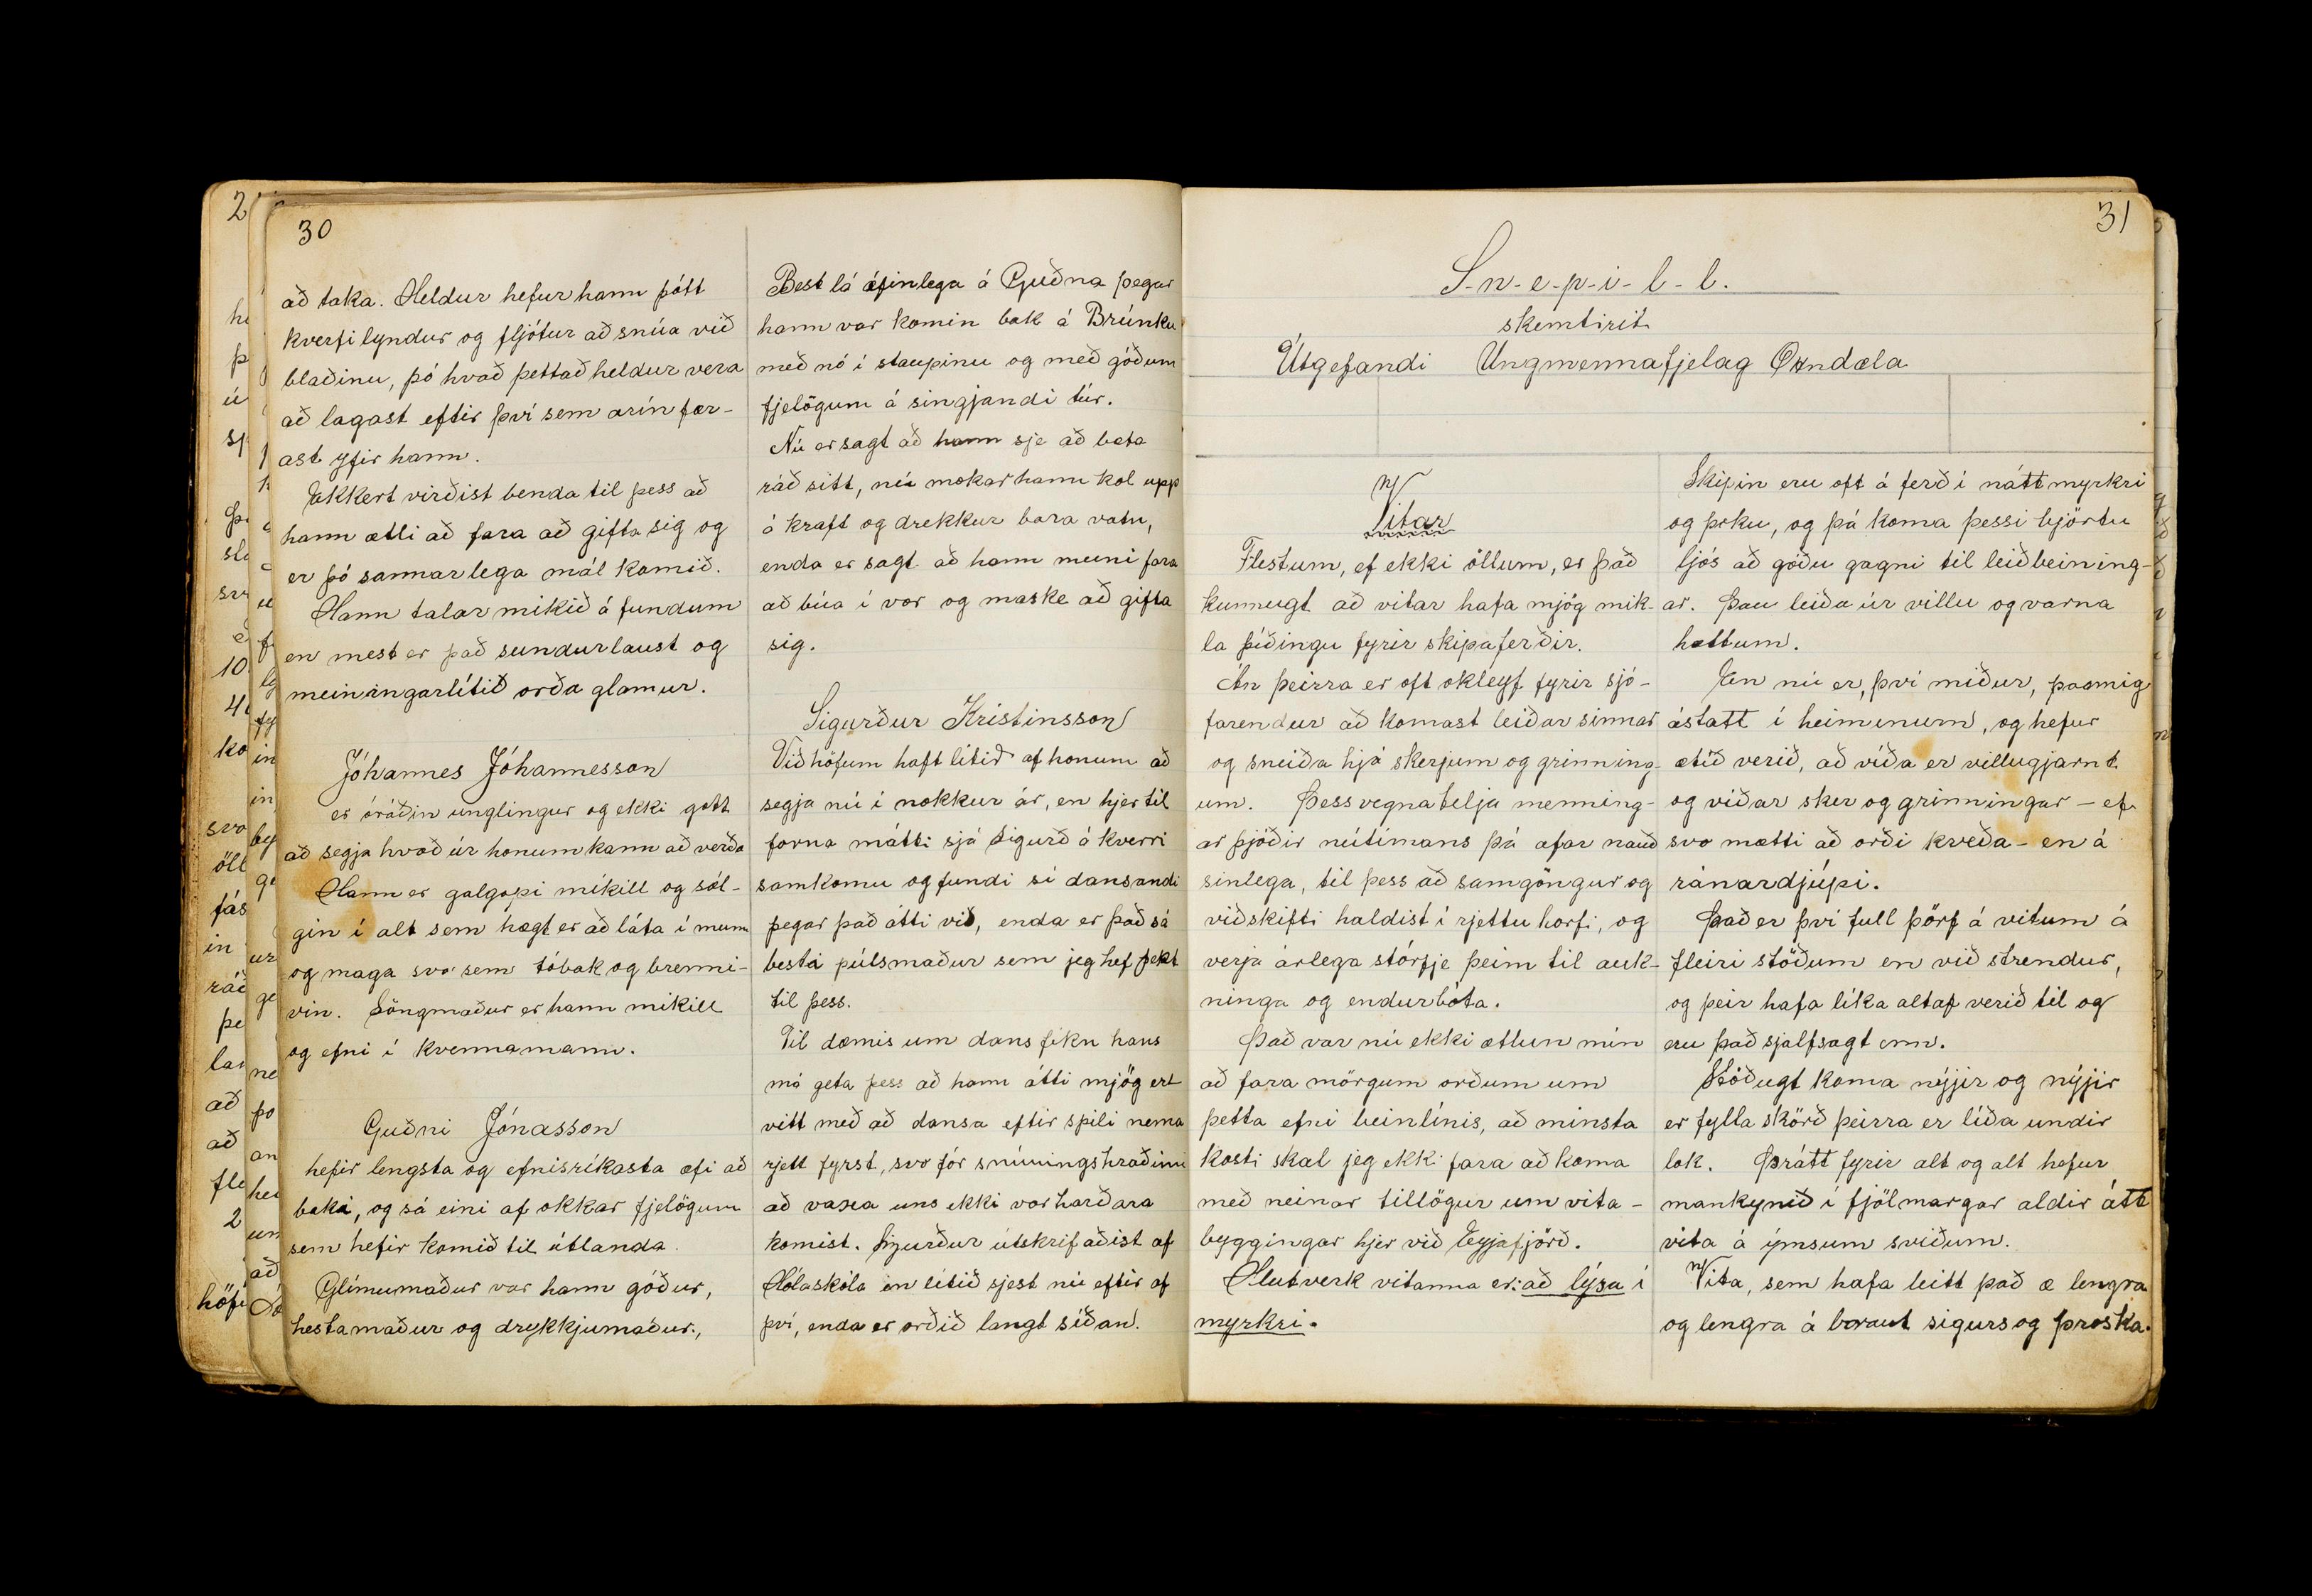 30
að taka. Heldur hefur hann þótt
kverfilyndur og fljótur að snúa við
blaðinu, þó hvað þettað heldur vera
að lagast eftir því sem árín fær-
ast yfir hann.
Ekkert virðist benda til þess að
hann ætli að fara að gifta sig og
er þó sannarlega mál komið.
Hann talar mikið á fundum
en mest er það sundurlaust og
meiningarlítið orða glamur.
Jóhannes Jóhannesson
er óráðin unglingur og ekki gott
að segja hvað úr honum kann að verða
Hann er galgopi mikill og sól-
gin í alt sem hægt er að láta í munn
og maga svo sem tóbak og brenni-
vín. Söngmaður er hann mikill
og efni í kvennamann.
Guðni Jónasson
hefir lengsta og efnisríkasta æfi að
baki, og sá eini af okkar fjelögum
sem hefir komið til útlanda.
Glímumaður var hann góður,
hestamaður og drykkjumaður.,
Best lá æfinlega á Guðna þegar
hann var komin bak á Brúnku
með nó í staupinu og með góðum
fjelögum á singjandi túr.
Nú er sagt að hann sje að bæta
ráð sitt, nú mokar hann kol upp
á kraft og drekkur bara vatn,
enda er sagt að hann muni fara
að búa í vor og maske að gifta
sig.
Sigurður Kristinsson
Við höfum haft lítið af honum að
segja nú í nokkur ár, en hjer til
forna mátti sjá Sigurð á hverri
samkomu og fundi sí dansandi
þegar það átti við, enda er það sá
besti púlsmaður sem jeg hef þekt
til þess.
Til dæmis um dans fíkn hans
má geta þess að hann átti mjög erf
vitt með að dansa eftir spili nema
rjett fyrst, svo fór snúningshraðinn
að vaxa uns ekki var harðara
komist. Sigurður útskrifaðist af
Hólaskóla en lítið sjest nú eftir af
því, enda er orðið langt síðan.
31
S-n-e-p-i-l-l.
skemtirit
Útgefandi Ungmennafjelag Öxndæla
Vitar
Flestum, ef ekki öllum, er það
kunnugt að vitar hafa mjög mik-
la þíðingu fyrir skipaferðir.
Án þeirra er oft okleyf fyrir sjó-
farendur að komast leiðar sinnar
og sneiða hjá skerjum og grinning-
um. Þess vegna telja menning-
ar þjóðir nútímans þá afar nauð
sinlega, til þess að samgöngur og
viðskifti haldist í rjettu horfi, og
verja árlega stórfje þeim til auk-
ninga og endurbóta.
Það var nú ekki ætlun mín
að fara mörgum orðum um
þetta efni beinlínis, að minsta
kosti skal jeg ekki fara að koma
með neinar tillögur um vita-
byggingar hjer við Eyjafjörð.
Hlutverk vitanna er: að lýsa í
myrkri.
Skipin eru oft á ferð í náttmyrkri
og þoku, og þá koma þessi björtu
ljós að góðu gagni til leiðbeining-
ar. Þau leiða úr villu og varna
hættum.
En nú er, því miður, þannig
ástatt í heiminum, og hefur
ætíð verið, að víða er villugjarnt
og víðar sker og grinningar – ef
svo mætti að orði kveða – en á
ránardjúpi.
Það er því full þörf á vitum á
fleiri stöðum en við strendur,
og þeir hafa líka altaf verið til og
eru það sjalfsagt enn.
Stöðugt koma nýjir og nýjir
er fylla skörð þeirra er líða undir
lok. Þrátt fyrir alt og alt hefur
mankynið í fjölmargar aldir átt
vita á ýmsum sviðum.
Vita, sem hafa leitt það æ lengra
og lengra á braut sigurs og þroska.